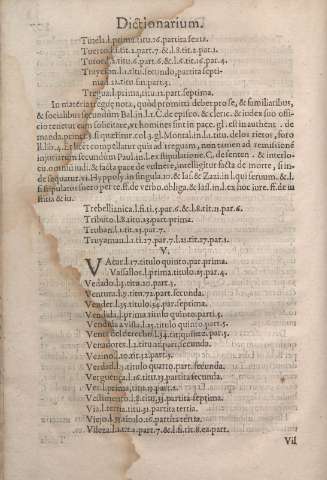 Dictionarium.
Tutela.l.prima.titu.16.partita sexta.
Tuerto.l.1.tit.2.part.7.&.l.8.tit.2.par.1.
Tutor.l.2.titu.6.part.2.&.l.6.tit.16.par.4.
Trayción.l.1.titu.secundo, partita septi-
ma.l.tit. fin.part.5.
Tregua.l.prima,titu.12.part.septima.
In materia treguę nota, quòd promitti debet pro se, & familiaribus,
& socialibus secundum Bal.in.l.1.C.de episco.& cleric.& index suo offi-
cio tenetur eam sollicitare, ut homines sint in pace. gl. est in authent. de
manda.prin.§.si quis
fuit.col.3.gl.Montal.in l.1.titu.delos rietos, foro
R.lib.4.Et licet compellatur quis ad treguam, non tamen ad remissionem
iniuriarum secundum Paul.in l.ex stipulatione.C.desenten. & interlo-
cu.omniu.iu.l. & facta pace de vulnere, intelligitur facta de morte, si in-
de sequatur.vi.Hyppoly.in singula.10.& Ias.& Zazi.in l.qui seruum.&.l.
si stipulatus fuero per te.ff.de verbo.obliga.& Iasf.in l.ex hoc iure.ff.de iu
stitia & iu.
Trebellianica.l.fi.ti.5.par.6.&.l.8.tit.11.par.6.
Tributo.l.8.titu.13.part.prima.
Truhan.l.1.tit.23.par.7.
Truyaman.l.1.ti.27.par.7.l.11.tit.27.par.1.
V.
VAcar.l.17.titulo quinto.par.prima.
Vassallos.l.prima.titulo.25.par.4.
Vedado.l.5.titu.20.part.3.
Ventura.l.9.titu.72.part.secunda.
Vender.l.35.titulo.34.par.septima.
Vendida.l.prima titulo quinto.parti.5.
Vendida a vista.l.25.titulo quinto.part.5.
Venta del derecho.l.34.titu.quinto.par.5.
Venadores.l.2.titu.20.part.secunda.
Vezino.l.10.tit.32.part.3.
Verdad.l.3.titulo quarto.part.secunda.
Verguença.l.16.titu.13.partita secunda.
Ver.l.prima,titu.13.part.2.
Vestimento.l.8.titu.33.partita septima.
Via.l.tertia,titu.31.partita tertia.
Viejo.l.35.titulo.16.partita tertia.
Vileza.l.1.tit.2.part.7.&.l.fi.tit.8.ea.part.
Vil